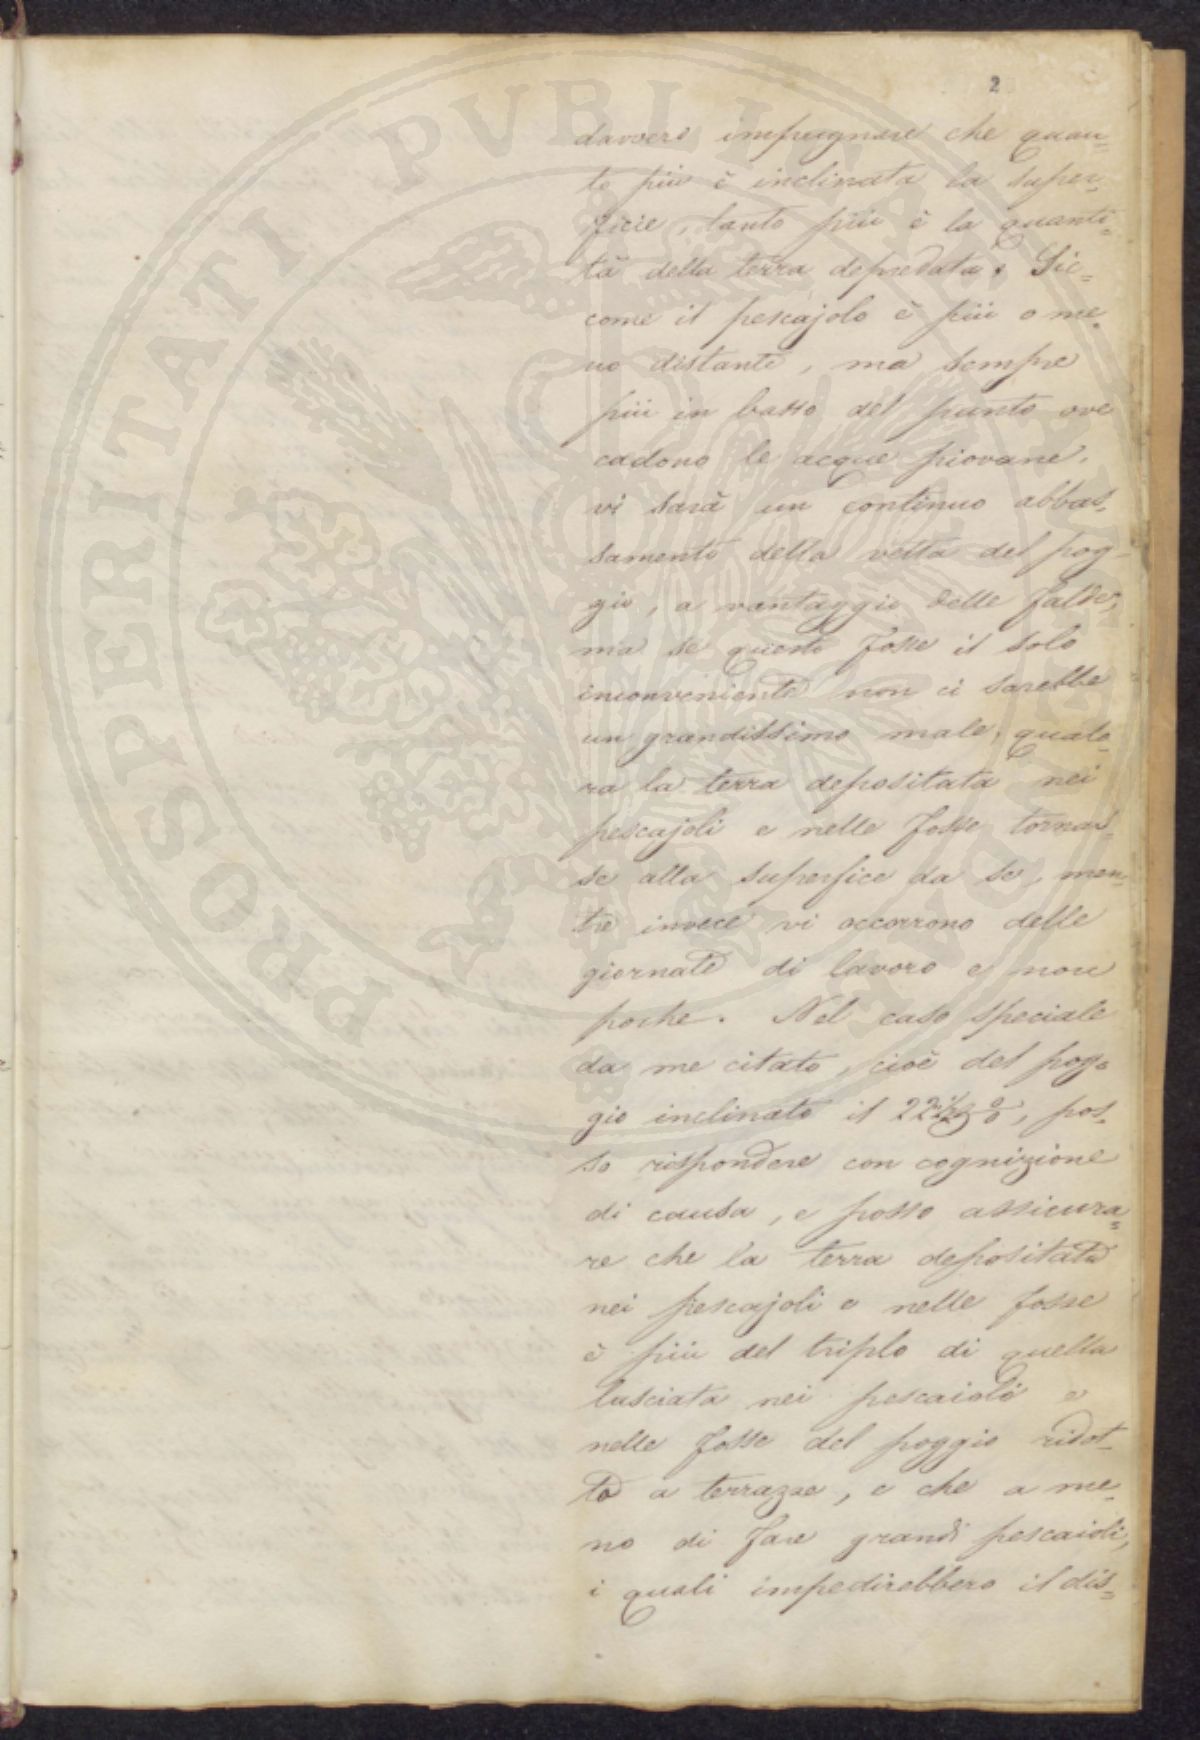 2
davvero impugnare che quan=
to più è inclinata la super=
ficie, tanto più è la quanti=
tà della terra depredata. Sic=
come il pescajolo è più o me=
no distante, ma sempre
più in basso del punto ove
cadono le acque piovane,
vi sarà un continuo abbas=
samento della vetta del pog=
gio, a vantaggio delle falde,
ma se questo fosse il solo
inconveniente non ci sarebbe
un grandissimo male, qualo=
ra la terra depositata nei
pescajoli e nelle fosse tornas=
se alla superfice da se, men=
tre invece vi occorrono delle
giornate di lavoro e non
poche. Nel caso speciale
da me citato, cioè del pog=
gio inclinato il 22 %, pos=
so rispondere con cognizione
di causa, e posso assicura=
re che la terra depositata
nei pescajoli e nelle fosse
è più del triplo di quella
lasciata nei pescaioli e
nelle fosse del poggio ridot=
to a terrazze, e che a me=
no di fare grandi pescaioli,
i quali impedirebbero il dis=
PROSPERITATI PVBLICAE AVGENDAE